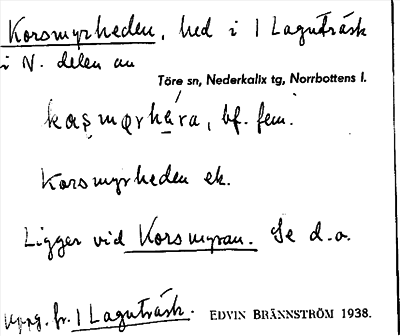 Korsmyrheden, hed i 1 Lagnträsk
i N. delen av
Töre sn, Nederkalix tg, Norrbottens l.
kåsmørhéra, bf. fem.
Korsmyrheden ek.
Ligger vid Korsmyran. Se d.o.
Uppg. fr. 1 Lagnträsk. EDVIN BRÄNNSTRÖM 1938.